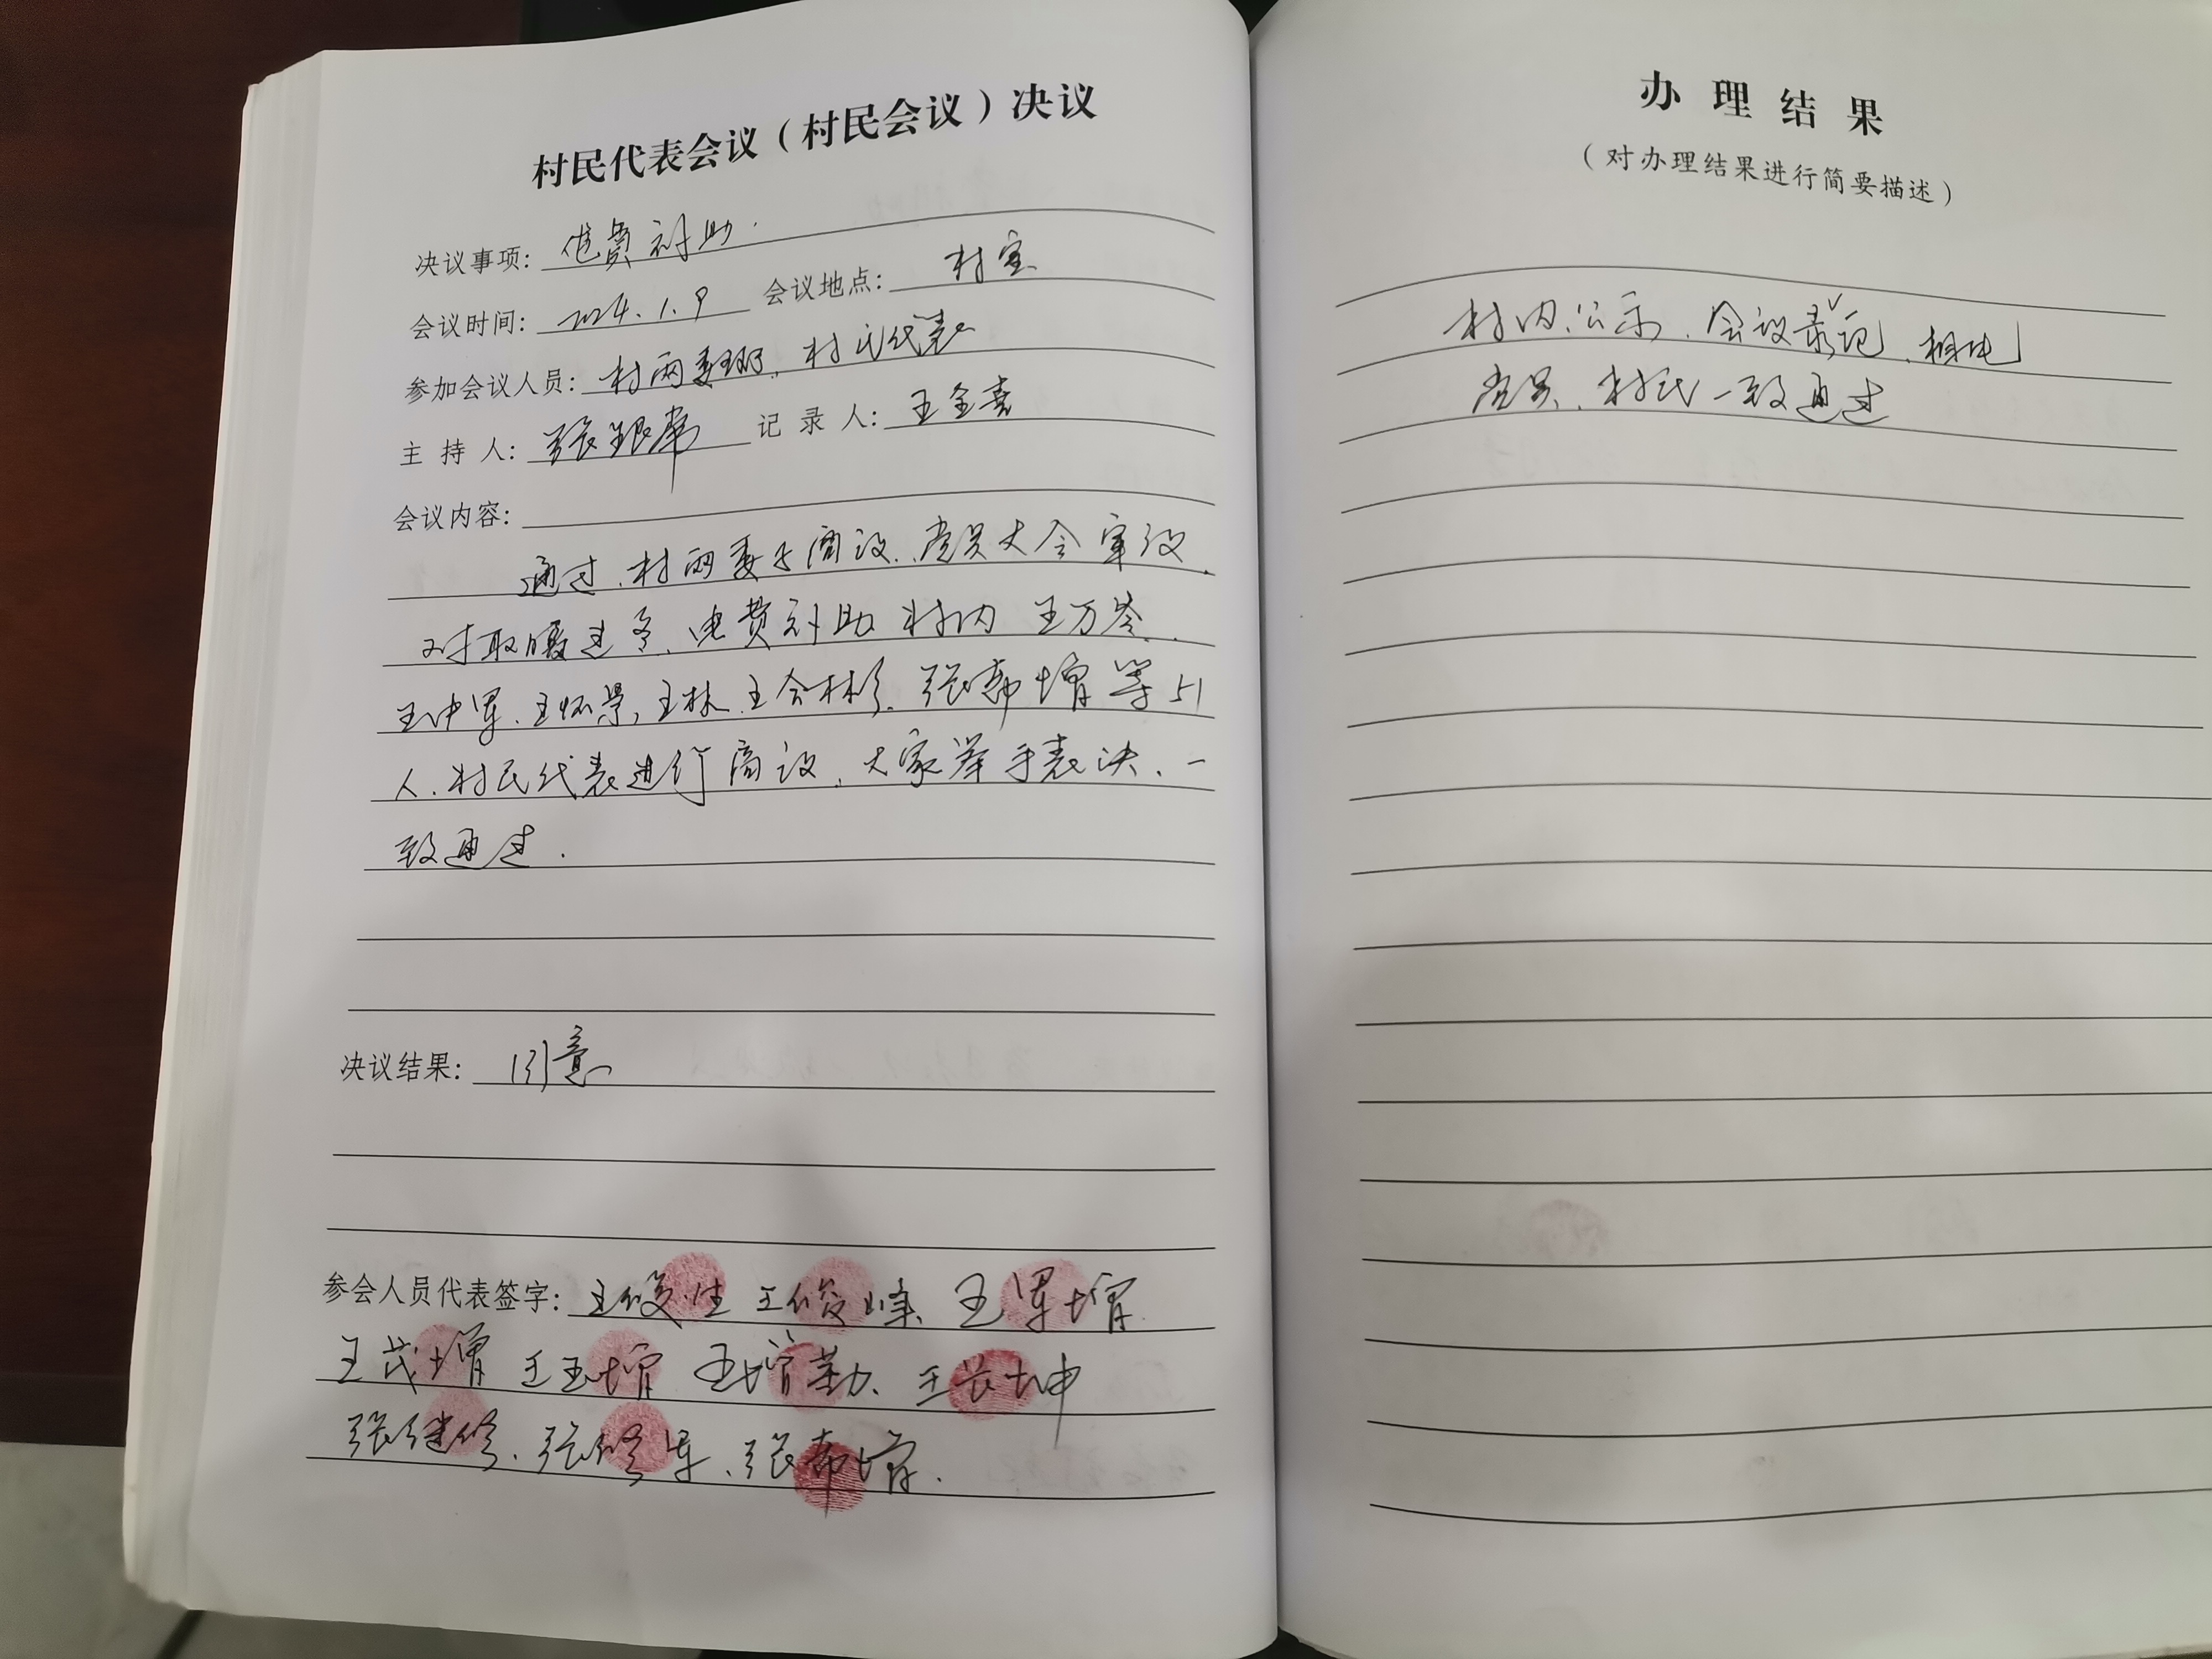 村民代表会议（村民会议）决议
决议事项：电费补助.
会议时间：2024.1.9 会议地点：村室
参加会议人员：村两委班、村民代表
主 持 人：张银席 记 录 人：王全喜
会议内容：
通过、村两委子商议、党员大会审议、
对取暖过冬、电费补助 村内 王万岺、
王中军、王怀景、王林、王合彬、张希增等51
人、村民代表进行商议、大家举手表决、一
致通过.
决议结果：同意
参会人员代表签字：王俊生 王俊峰 王军增
王茂增 王玉增 王增勤、王长坤
张继修、张修军、张希增.
办 理 结 果
（对办理结果进行简要描述）
村内公示、会议录记、
党员、村民一致通过